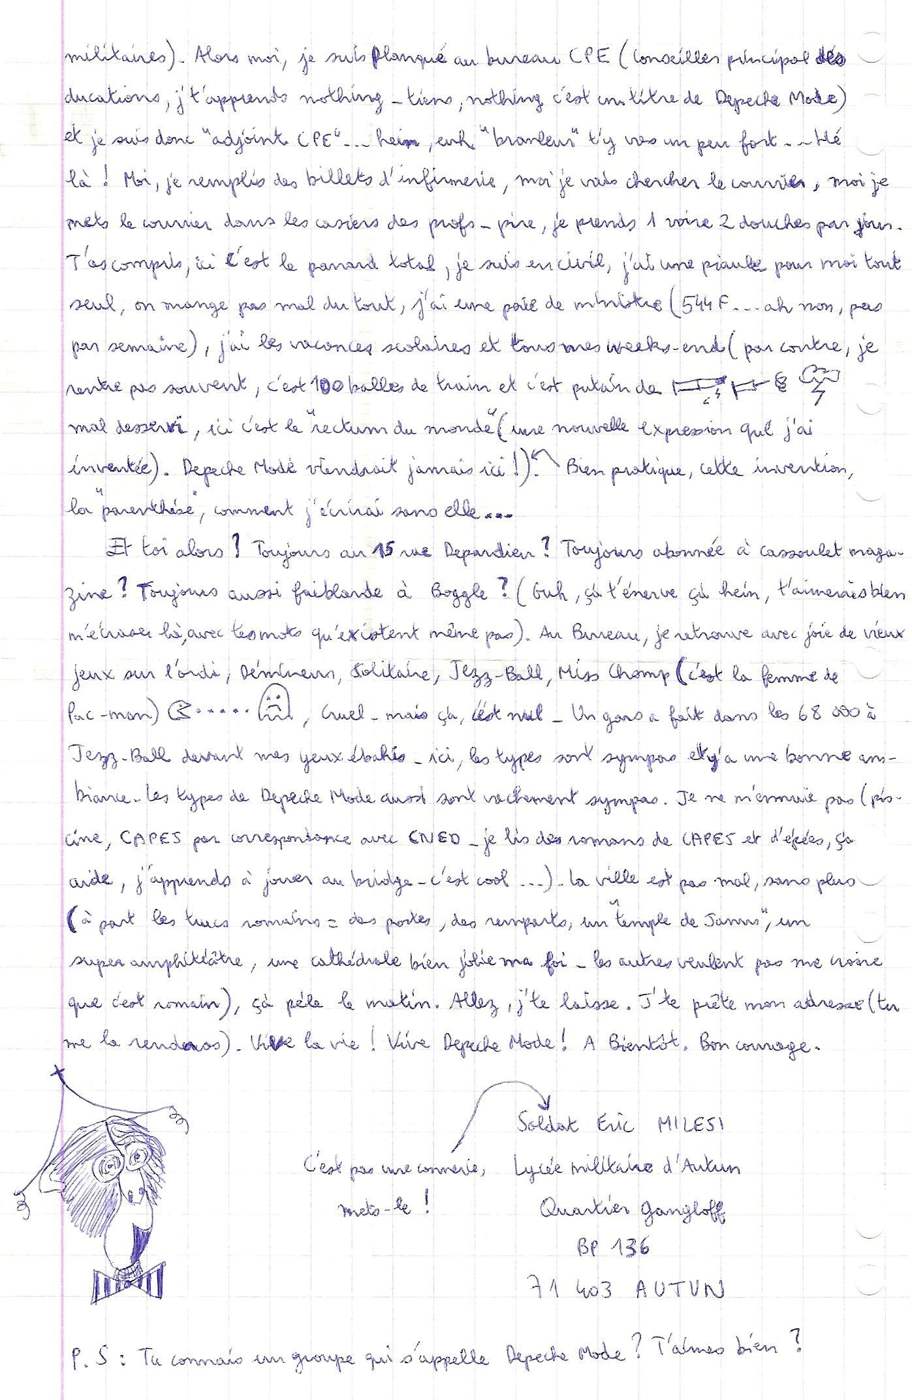 militaires). Alors moi, je suis planqué au bureau CPE (Conseilles principal dés
ducations, j't'apprends nothing - tiens, nothing c'est un titre de Depeche Mode)
et je suis donc "adjoint CPE"... hein, euh "branleur" t'y vas un peu fort... Hé
là ! Moi, je remplis des billets d'infirmerie, moi je vais chercher le courrier, moi je
mets le courrier dans les casiers des profs - pire, je prends 1 voire 2 douches par jour.
T'as compris, ici c'est le panard total, je suis en civil, j'ai une piaule pour moi tout
seul, on mange pas mal du tout, j'ai une paie de ministre (544 F... ah non, pas
par semaine), j'ai les vacances scolaires et tous mes weeks-end (par contre, je
rentre pas souvent, c'est 100 balles de train et c'est putain de
mal desservi, ici c'est le "rectum du monde" (une nouvelle expression que j'ai
inventée). Depeche Mode viendrait jamais ici !). Bien pratique, cette invention,
la "parenthèse", comment j'écrirai sans elle...
Et toi alors ? Toujours au 15 rue Depardieu ? Toujours abonnée à cassoulet maga-
zine ? Toujours aussi faiblarde à Boggle ? (Euh, çà t'énerve çà hein, t'aimerais bien
m'écraser là, avec tes mots qu'existent même pas). Au Bureau, je retrouve avec joie de vieux
jeux sur l'ordi, Démineur, Solitaire, Jezz-Ball, Miss Chomp (c'est la femme de
Pac-man) , cruel - mais ça, c'est nul - Un gars a fait dans les 68 000 à
Jezz-Ball devant mes yeux ébahis - ici, les types sont sympas et y'a une bonne am-
biance. Les types de Depeche Mode aussi sont vachement sympas. Je ne m'ennuie pas (pis-
cine, CAPES par correspondance avec CNED - je lis des romans de CAPES et d'épées, ça
aide, j'apprends à jouer au bridge - c'est cool ...). La ville est pas mal, sans plus
(à part les trucs romains = des portes, des remparts, un "temple de Janus", un
super amphithéâtre, une cathédrale bien jolie ma foi - les autres veulent pas me croire
que c'est romain), çà pèle le matin. Allez, j'te laisse. J'te prête mon adresse (tu
me la rendras). Vive la vie ! Vive Depeche Mode ! A Bientôt. Bon courage.
Soldat Eric MILESI
C'est pas une connerie, Lycée militaire d'Autun
mets-le ! Quartier Gangloff
BP 136
71 403 AUTUN
P.S : Tu connais un groupe qui s'appelle Depeche Mode ? T'aimes bien ?